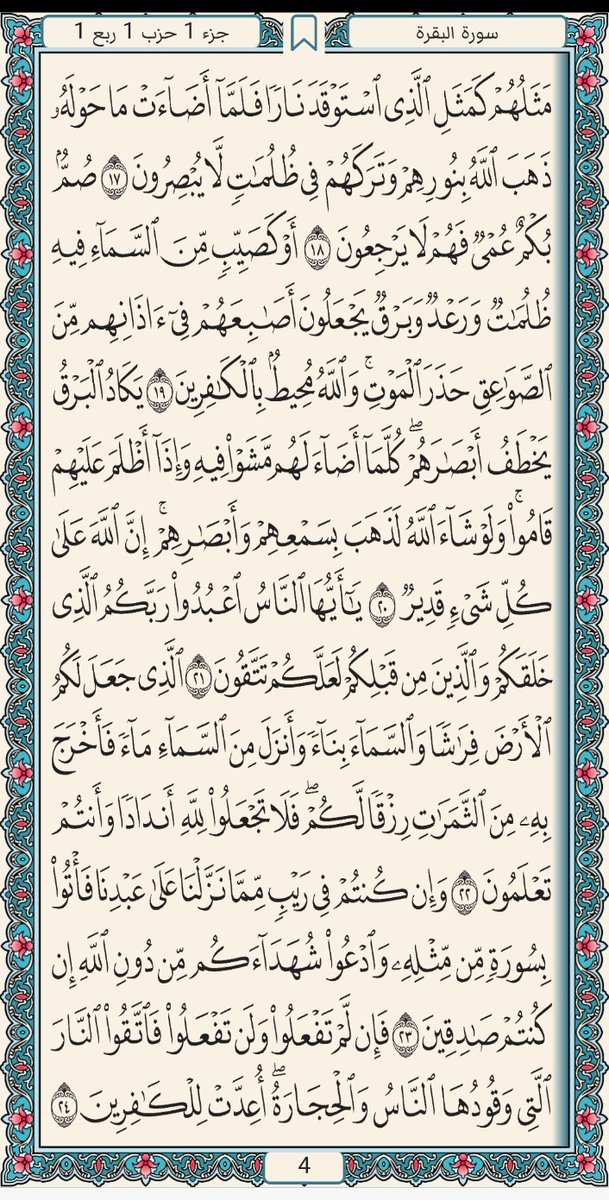 سورة البقرة
جزء 1 حزب 1 ربع 1
مَثَلُهُمْ كَمَثَلِ ٱلَّذِى ٱسْتَوْقَدَ نَارًا فَلَمَّآ أَضَآءَتْ مَا حَوْلَهُۥ
ذَهَبَ ٱللَّهُ بِنُورِهِمْ وَتَرَكَهُمْ فِى ظُلُمَٰتٍ لَّا يُبْصِرُونَ ١٧ صُمٌّۢ
بُكْمٌ عُمْىٌ فَهُمْ لَا يَرْجِعُونَ ١٨ أَوْ كَصَيِّبٍ مِّنَ ٱلسَّمَآءِ فِيهِ
ظُلُمَٰتٌ وَرَعْدٌ وَبَرْقٌ يَجْعَلُونَ أَصَٰبِعَهُمْ فِىٓ ءَاذَانِهِم مِّنَ
ٱلصَّوَٰعِقِ حَذَرَ ٱلْمَوْتِ ۚ وَٱللَّهُ مُحِيطٌۢ بِٱلْكَٰفِرِينَ ١٩ يَكَادُ ٱلْبَرْقُ
يَخْطَفُ أَبْصَٰرَهُمْ ۖ كُلَّمَآ أَضَآءَ لَهُم مَّشَوْا۟ فِيهِ وَإِذَآ أَظْلَمَ عَلَيْهِمْ
قَامُوا۟ ۚ وَلَوْ شَآءَ ٱللَّهُ لَذَهَبَ بِسَمْعِهِمْ وَأَبْصَٰرِهِمْ ۚ إِنَّ ٱللَّهَ عَلَىٰ
كُلِّ شَىْءٍ قَدِيرٌ ٢٠ يَٰٓأَيُّهَا ٱلنَّاسُ ٱعْبُدُوا۟ رَبَّكُمُ ٱلَّذِى
خَلَقَكُمْ وَٱلَّذِينَ مِن قَبْلِكُمْ لَعَلَّكُمْ تَتَّقُونَ ٢١ ٱلَّذِى جَعَلَ لَكُمُ
ٱلْأَرْضَ فِرَٰشًا وَٱلسَّمَآءَ بِنَآءً وَأَنزَلَ مِنَ ٱلسَّمَآءِ مَآءً فَأَخْرَجَ
بِهِۦ مِنَ ٱلثَّمَرَٰتِ رِزْقًا لَّكُمْ ۖ فَلَا تَجْعَلُوا۟ لِلَّهِ أَندَادًا وَأَنتُمْ
تَعْلَمُونَ ٢٢ وَإِن كُنتُمْ فِى رَيْبٍ مِّمَّا نَزَّلْنَا عَلَىٰ عَبْدِنَا فَأْتُوا۟
بِسُورَةٍ مِّن مِّثْلِهِۦ وَٱدْعُوا۟ شُهَدَآءَكُم مِّن دُونِ ٱللَّهِ إِن
كُنتُمْ صَٰدِقِينَ ٢٣ فَإِن لَّمْ تَفْعَلُوا۟ وَلَن تَفْعَلُوا۟ فَٱتَّقُوا۟ ٱلنَّارَ
ٱلَّتِى وَقُودُهَا ٱلنَّاسُ وَٱلْحِجَارَةُ ۖ أُعِدَّتْ لِلْكَٰفِرِينَ ٢٤
4